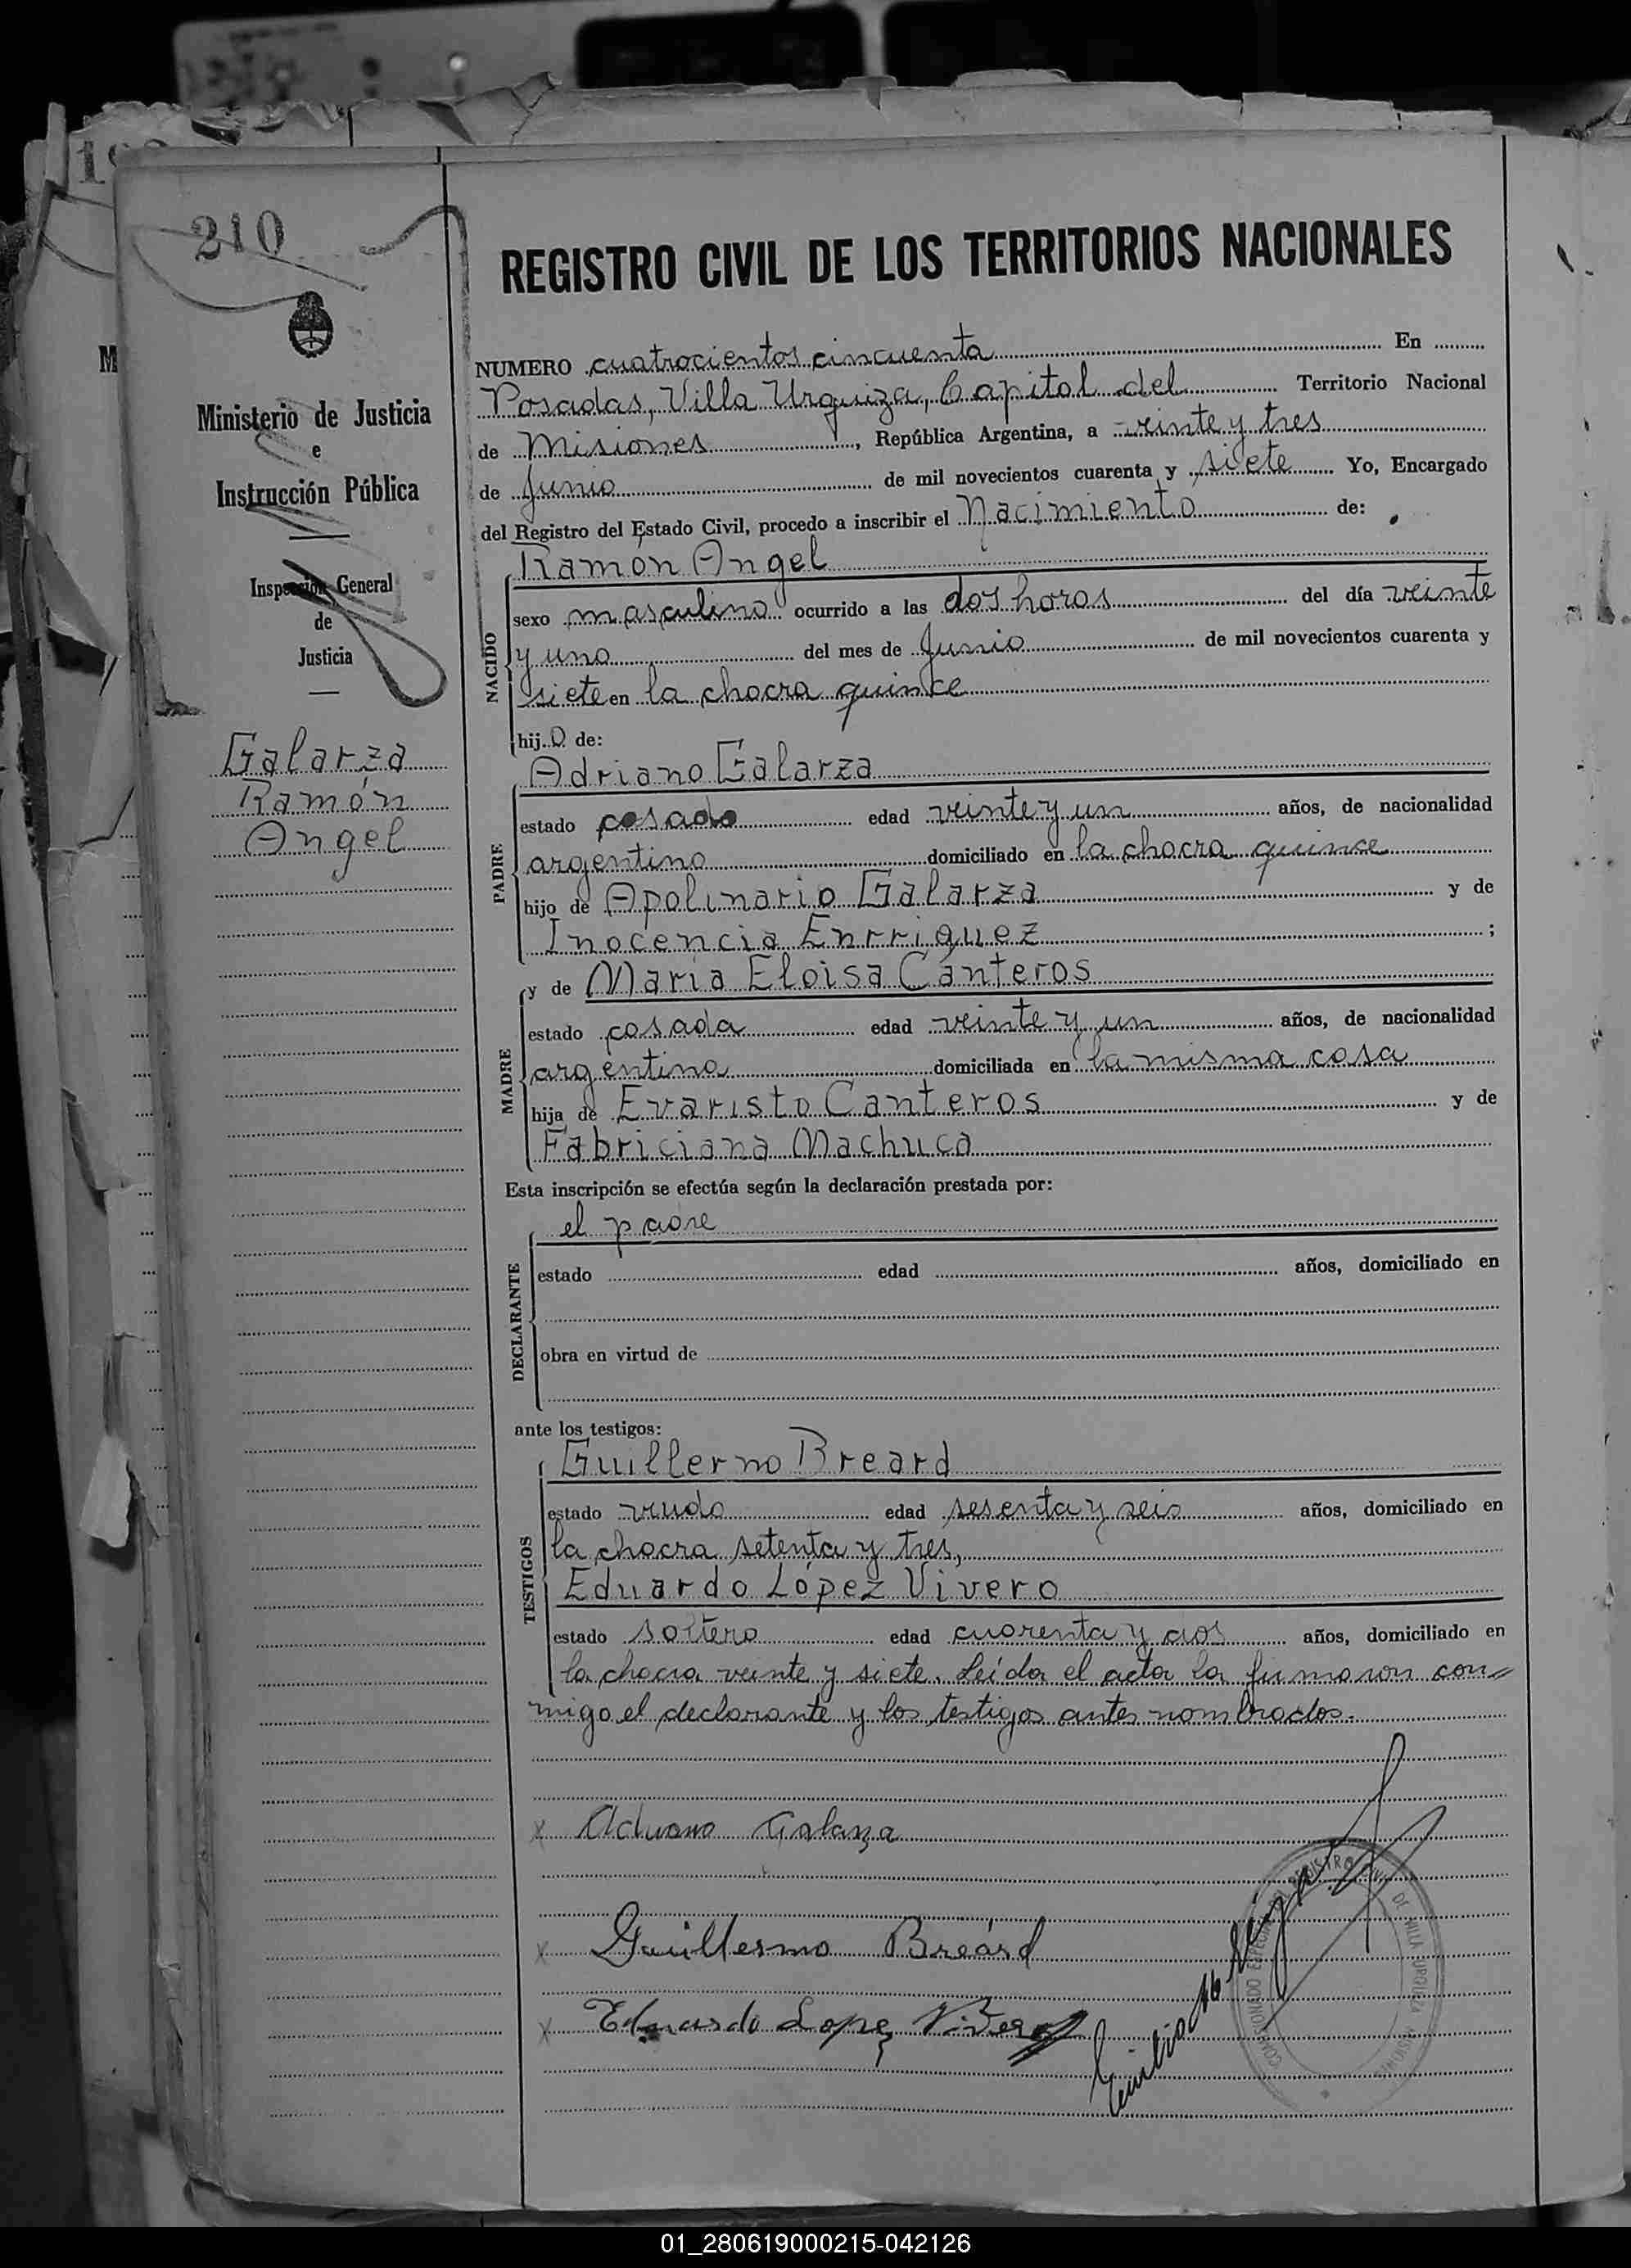 210
REGISTRO CIVIL DE LOS TERRITORIOS NACIONALES
Ministerio de Justicia
e
Instrucción Pública
Inspección General
de
Justicia
Galarza
Ramón
Angel
NUMERO cuatrocientos cincuenta En
Posadas, Villa Urquiza, Capital del Territorio Nacional
de Misiones, República Argentina, a veinte y tres
de Junio de mil novecientos cuarenta y siete Yo, Encargado
del Registro del Estado Civil, procedo a inscribir el Nacimiento de:
NACIDO
Ramón Angel
sexo masculino ocurrido a las dos horas del día veinte
y uno del mes de Junio de mil novecientos cuarenta y
siete en la chacra quince
hijo de:
PADRE
Adriano Galarza
estado casado edad veinte y un años, de nacionalidad
argentino domiciliado en la chacra quince
hijo de Apolinario Galarza y de
Inocencia Enrriquez;
MADRE
y de María Eloisa Canteros
estado casada edad veinte y un años, de nacionalidad
argentina domiciliada en la misma casa
hija de Evaristo Canteros y de
Fabriciana Machuca
Esta inscripción se efectúa según la declaración prestada por:
DECLARANTE
el padre
estado edad años, domiciliado en
obra en virtud de
ante los testigos:
TESTIGOS
Guillermo Breard
estado viudo edad sesenta y seis años, domiciliado en
la chacra setenta y tres,
Eduardo López Vivero
estado soltero edad cuarenta y dos años, domiciliado en
la chacra veinte y siete. Leída el acta la firmaron con=
migo el declarante y los testigos antes nombrados.
x Adriano Galarza
x Guillermo Breárd
x Eduardo Lopez Vivero
Emilio
REGISTRO CIVIL DE VILLA URQUIZA MISIONES
01_280619000215-042126